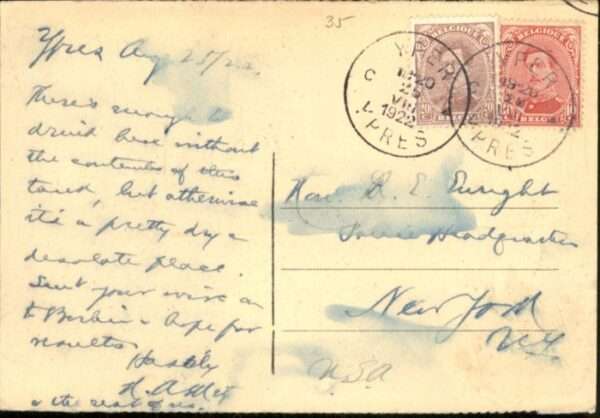 Ypres Aug 25/22.
There's enough to
drink here without
the contents of this
tank, but otherwise
it's a pretty dry &
desolate place.
Sent your wire on
to Berlin & hope for
results
Hastily
& the rest of us.
35
BELGIQUE BELGIË
BELGIQUE BELGIË
YPER
25
VIII
1922
YPRES
YPER
1922
YPRES
Hon. R. E. Enright
Police Headquarters
New York
N.Y.
U.S.A